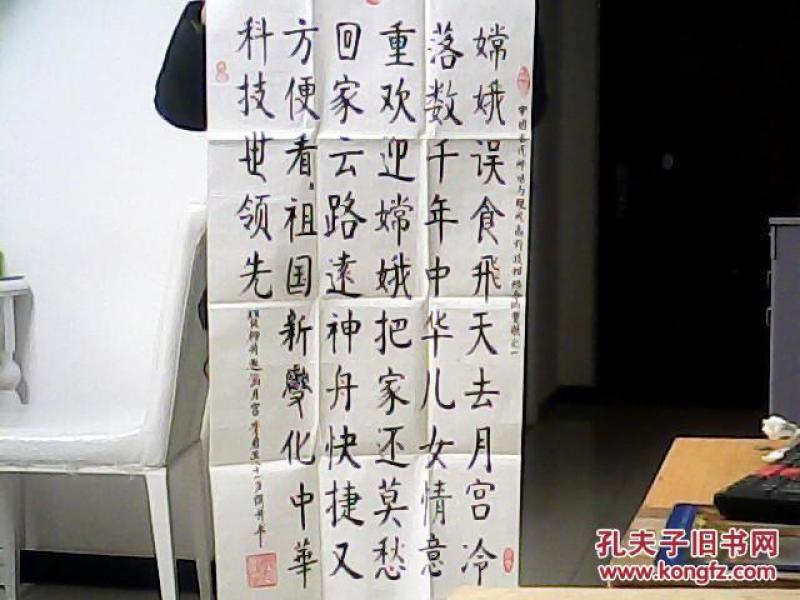 中国古代神话与现代高科技相结合的赞歌之一
嫦娥误食飛天去月宫冷
落数千年中华儿女情意
重欢迎嫦娥把家还莫愁
回家云路遠神舟快捷又
方便看祖国新變化中華
科技世领先
孔夫子旧书网
www.kongfz.com